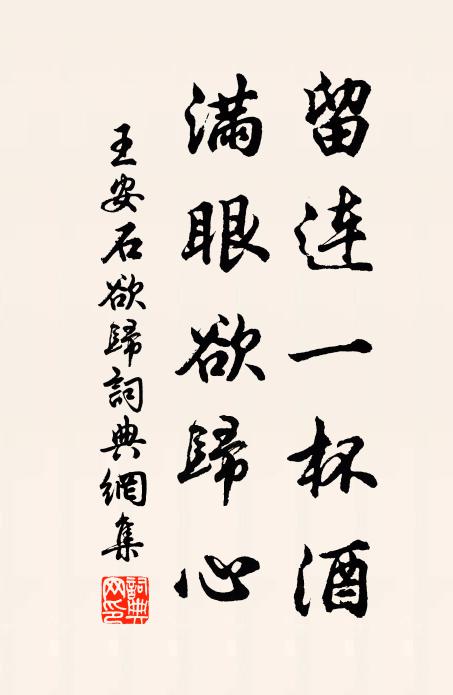 留連一杯酒
滿眼欲歸心
王安石欲歸詞典網集
詞典
网印